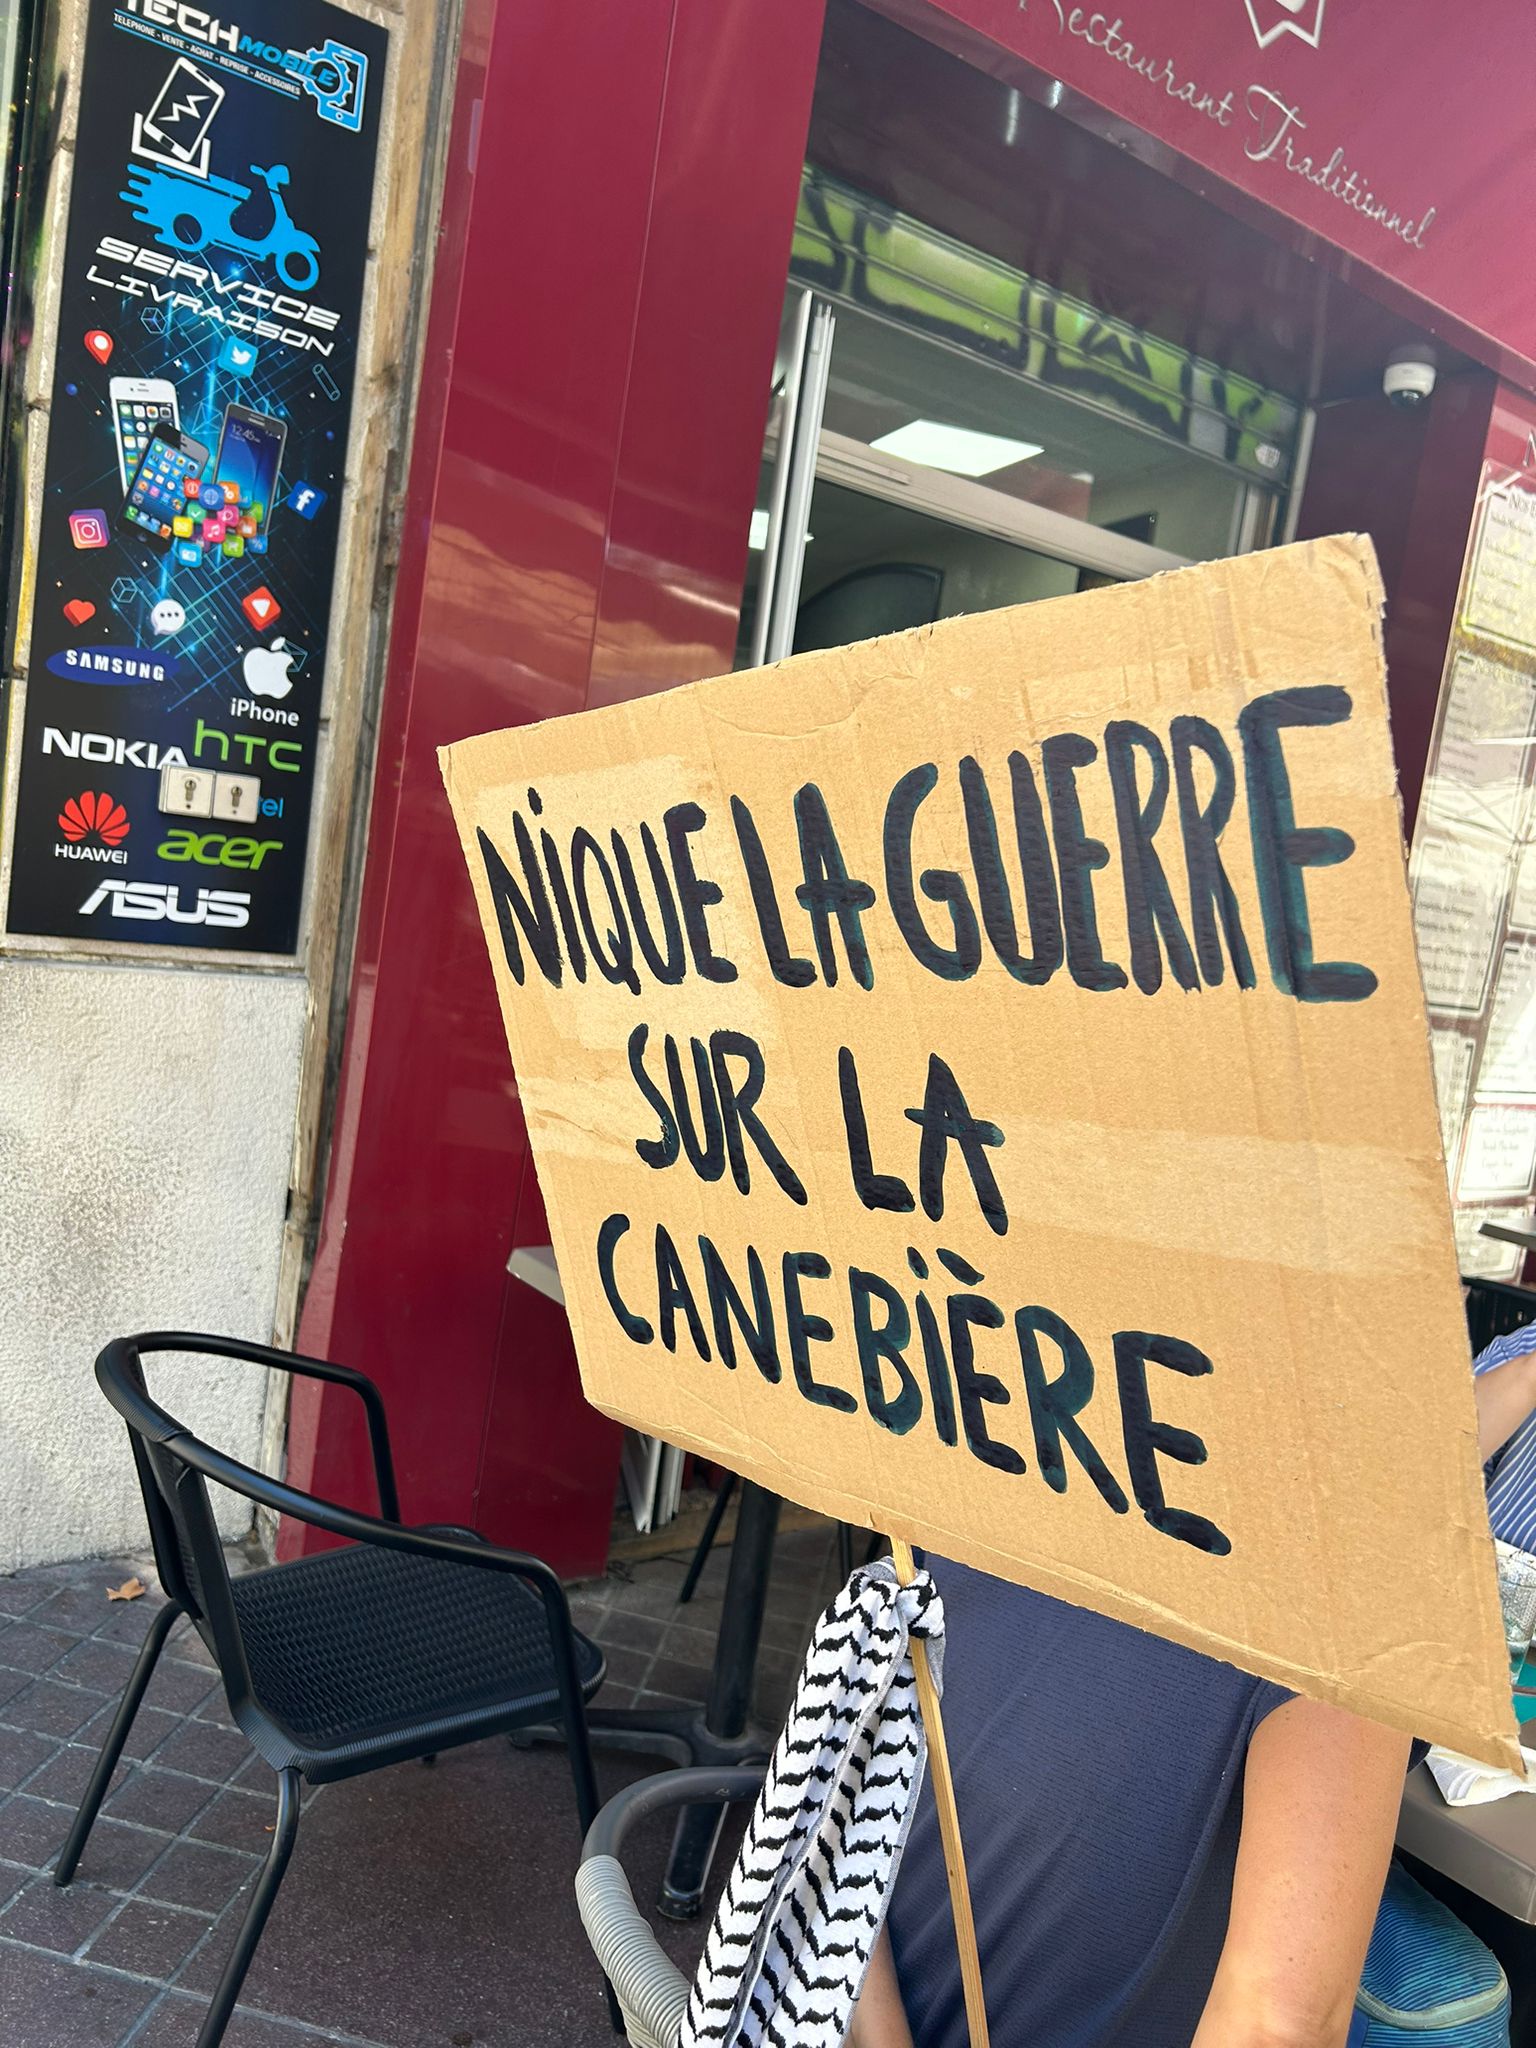 TECH MOBILE
TELEPHONE - VENTE - ACHAT - REPRISE - ACCESSOIRES
SERVICE
LIVRAISON
12:45
SAMSUNG
iPhone
NOKIA
hTC
HUAWEI
acer
ASUS
Restaurant Traditionnel
NIQUE LA GUERRE
SUR LA
CANEBIÈRE